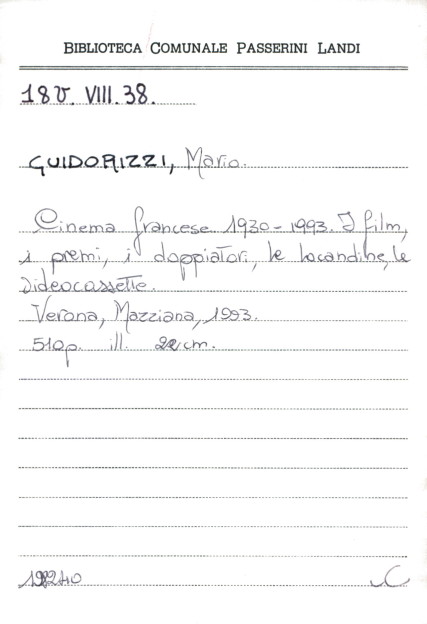 BIBLIOTECA COMUNALE PASSERINI LANDI
18 V. VIII. 38.
GUIDORIZZI, Mario.
Cinema francese 1930-1993. I film,
i premi, i doppiatori, le locandine, le
videocassette.
Verona, Mazziana, 1993.
510p. ill. 22cm.